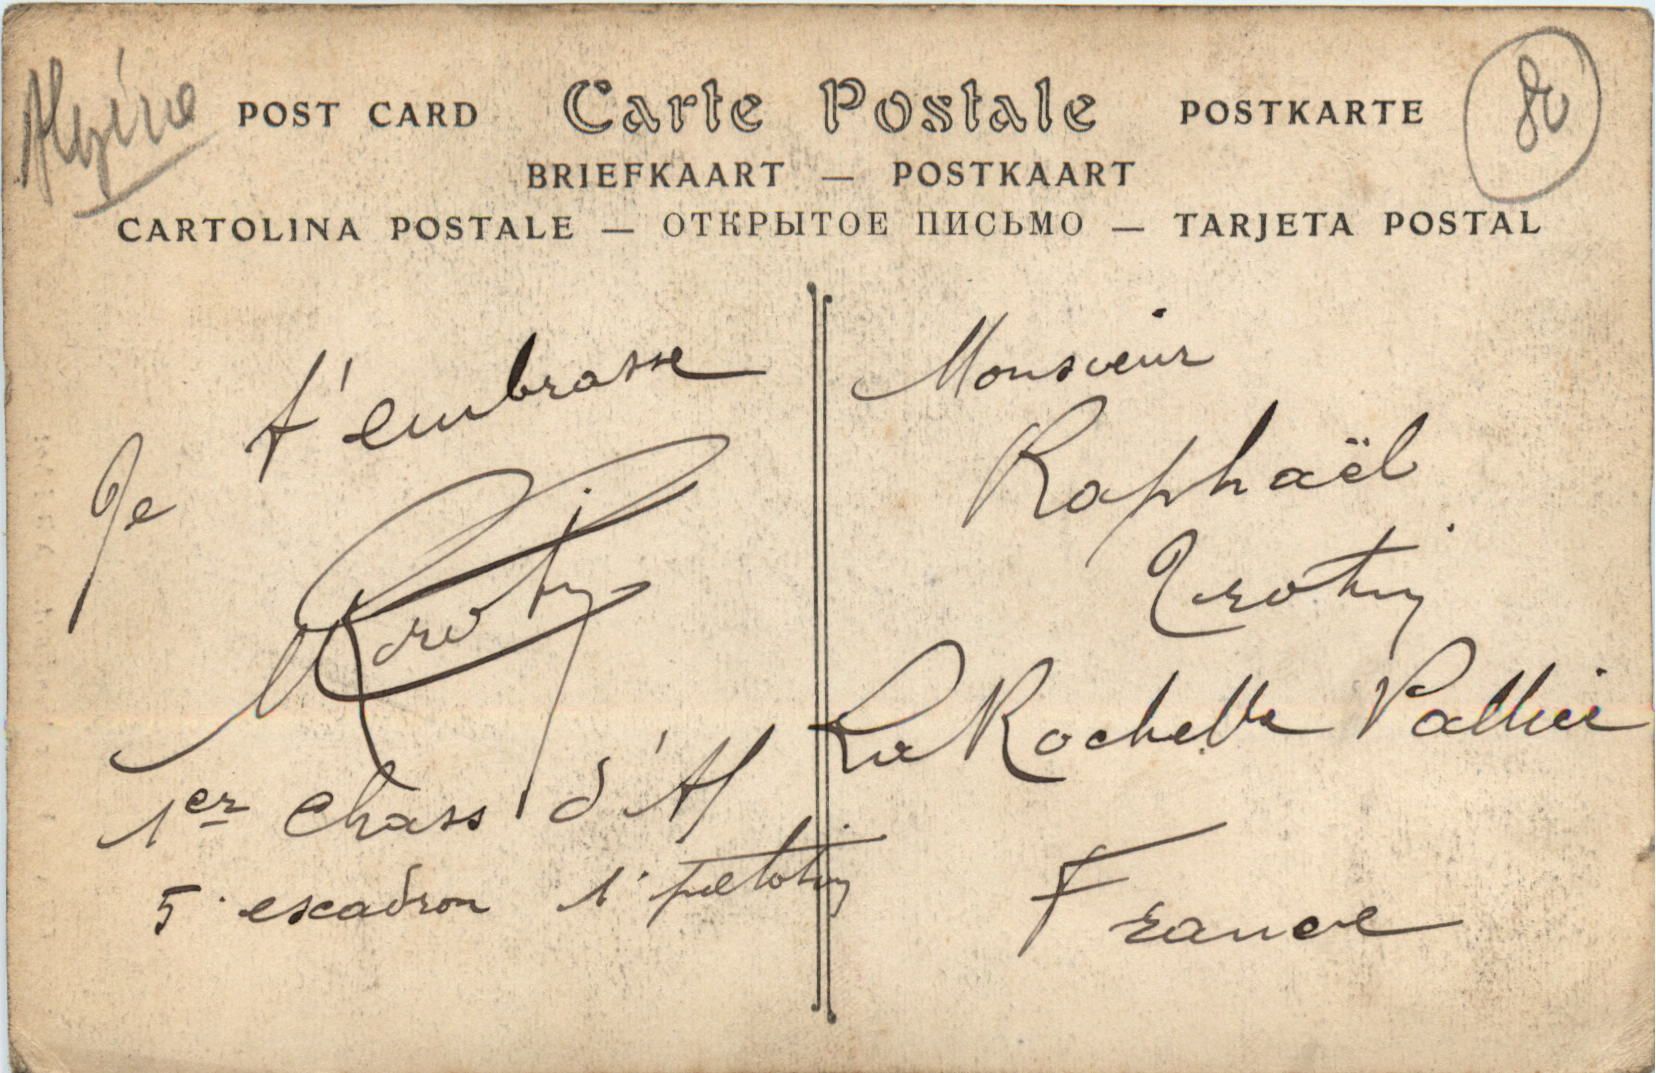 Algérie
80
POST CARD Carte Postale POSTKARTE
BRIEFKAART — POSTKAART
CARTOLINA POSTALE — ОТКРЫТОЕ ПИСЬМО — TARJETA POSTAL
Je t'embrasse
1er Chass d'Af
5. escadron 1. peloton
Monsieur
Raphaël
La Rochelle Pallice
France